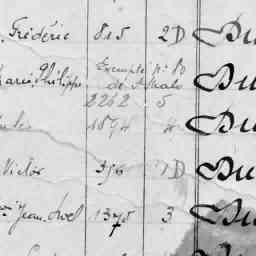 Frédéric 815 2D Du
Marie Philippe Exempté n° 80 Du
de St Malo
2262 5
1894 4 Du
Victor 396 1D Du
Jean 1375 3 Du